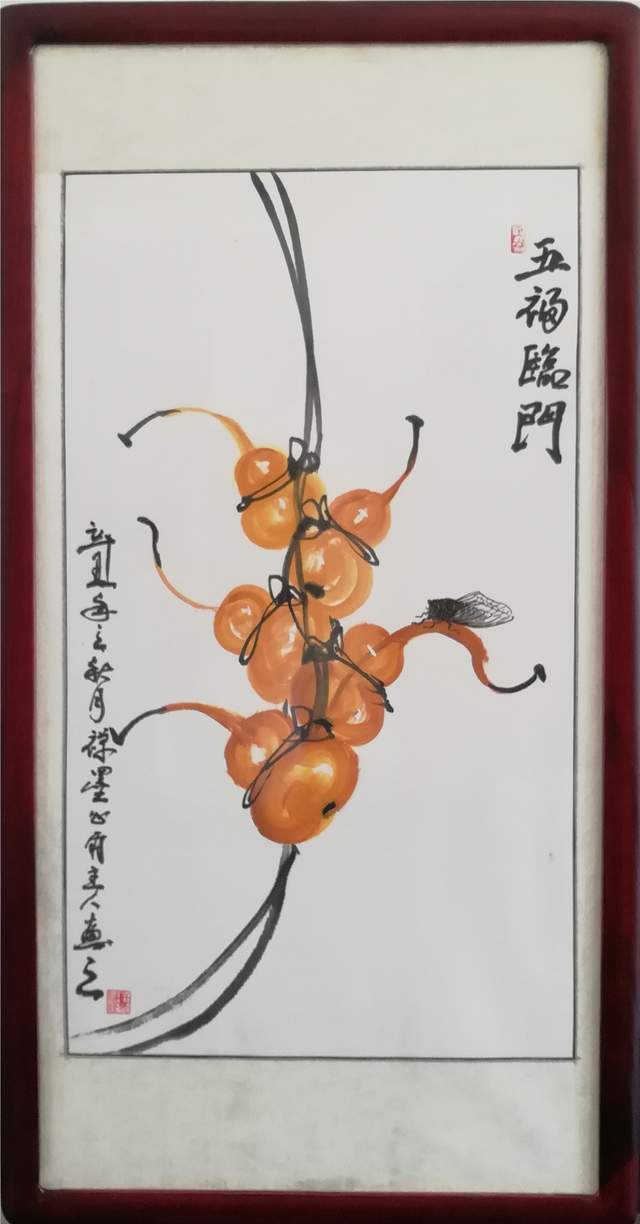 五福臨門
辛丑年之秋月禪墨山房主人畫之